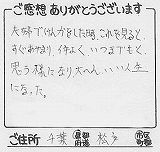 ご感想ありがとうございます
夫婦でけんかをした時、これを見ると、
すぐおさまり、仲よく、いつまでもと、
思う様になり大へん、いい人生
になった。
ご住所 千葉 都道府県 松戸 市区町村